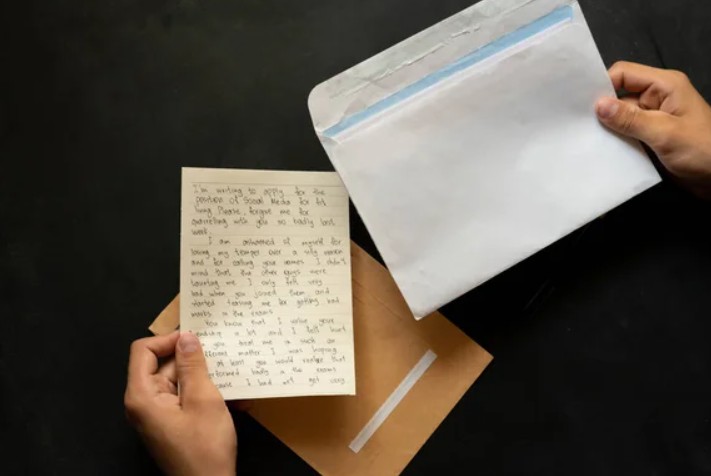 I'm writing to apply for the
position of Social Media for Ad
long Please, forgive me for
quarreling with you so badly last
week.
I am ashamed of myself for
losing my temper over a silly
and for calling your names. I didn't
mind that the other guys were
I only felt very
bad when you joined them and
started teasing me for getting bad
marks in the exams.
You know that I value your
a lot and I felt hurt
you treat me a such an
matter. I was hoping
at least you would realize that
performed badly in the exams
I had not get very